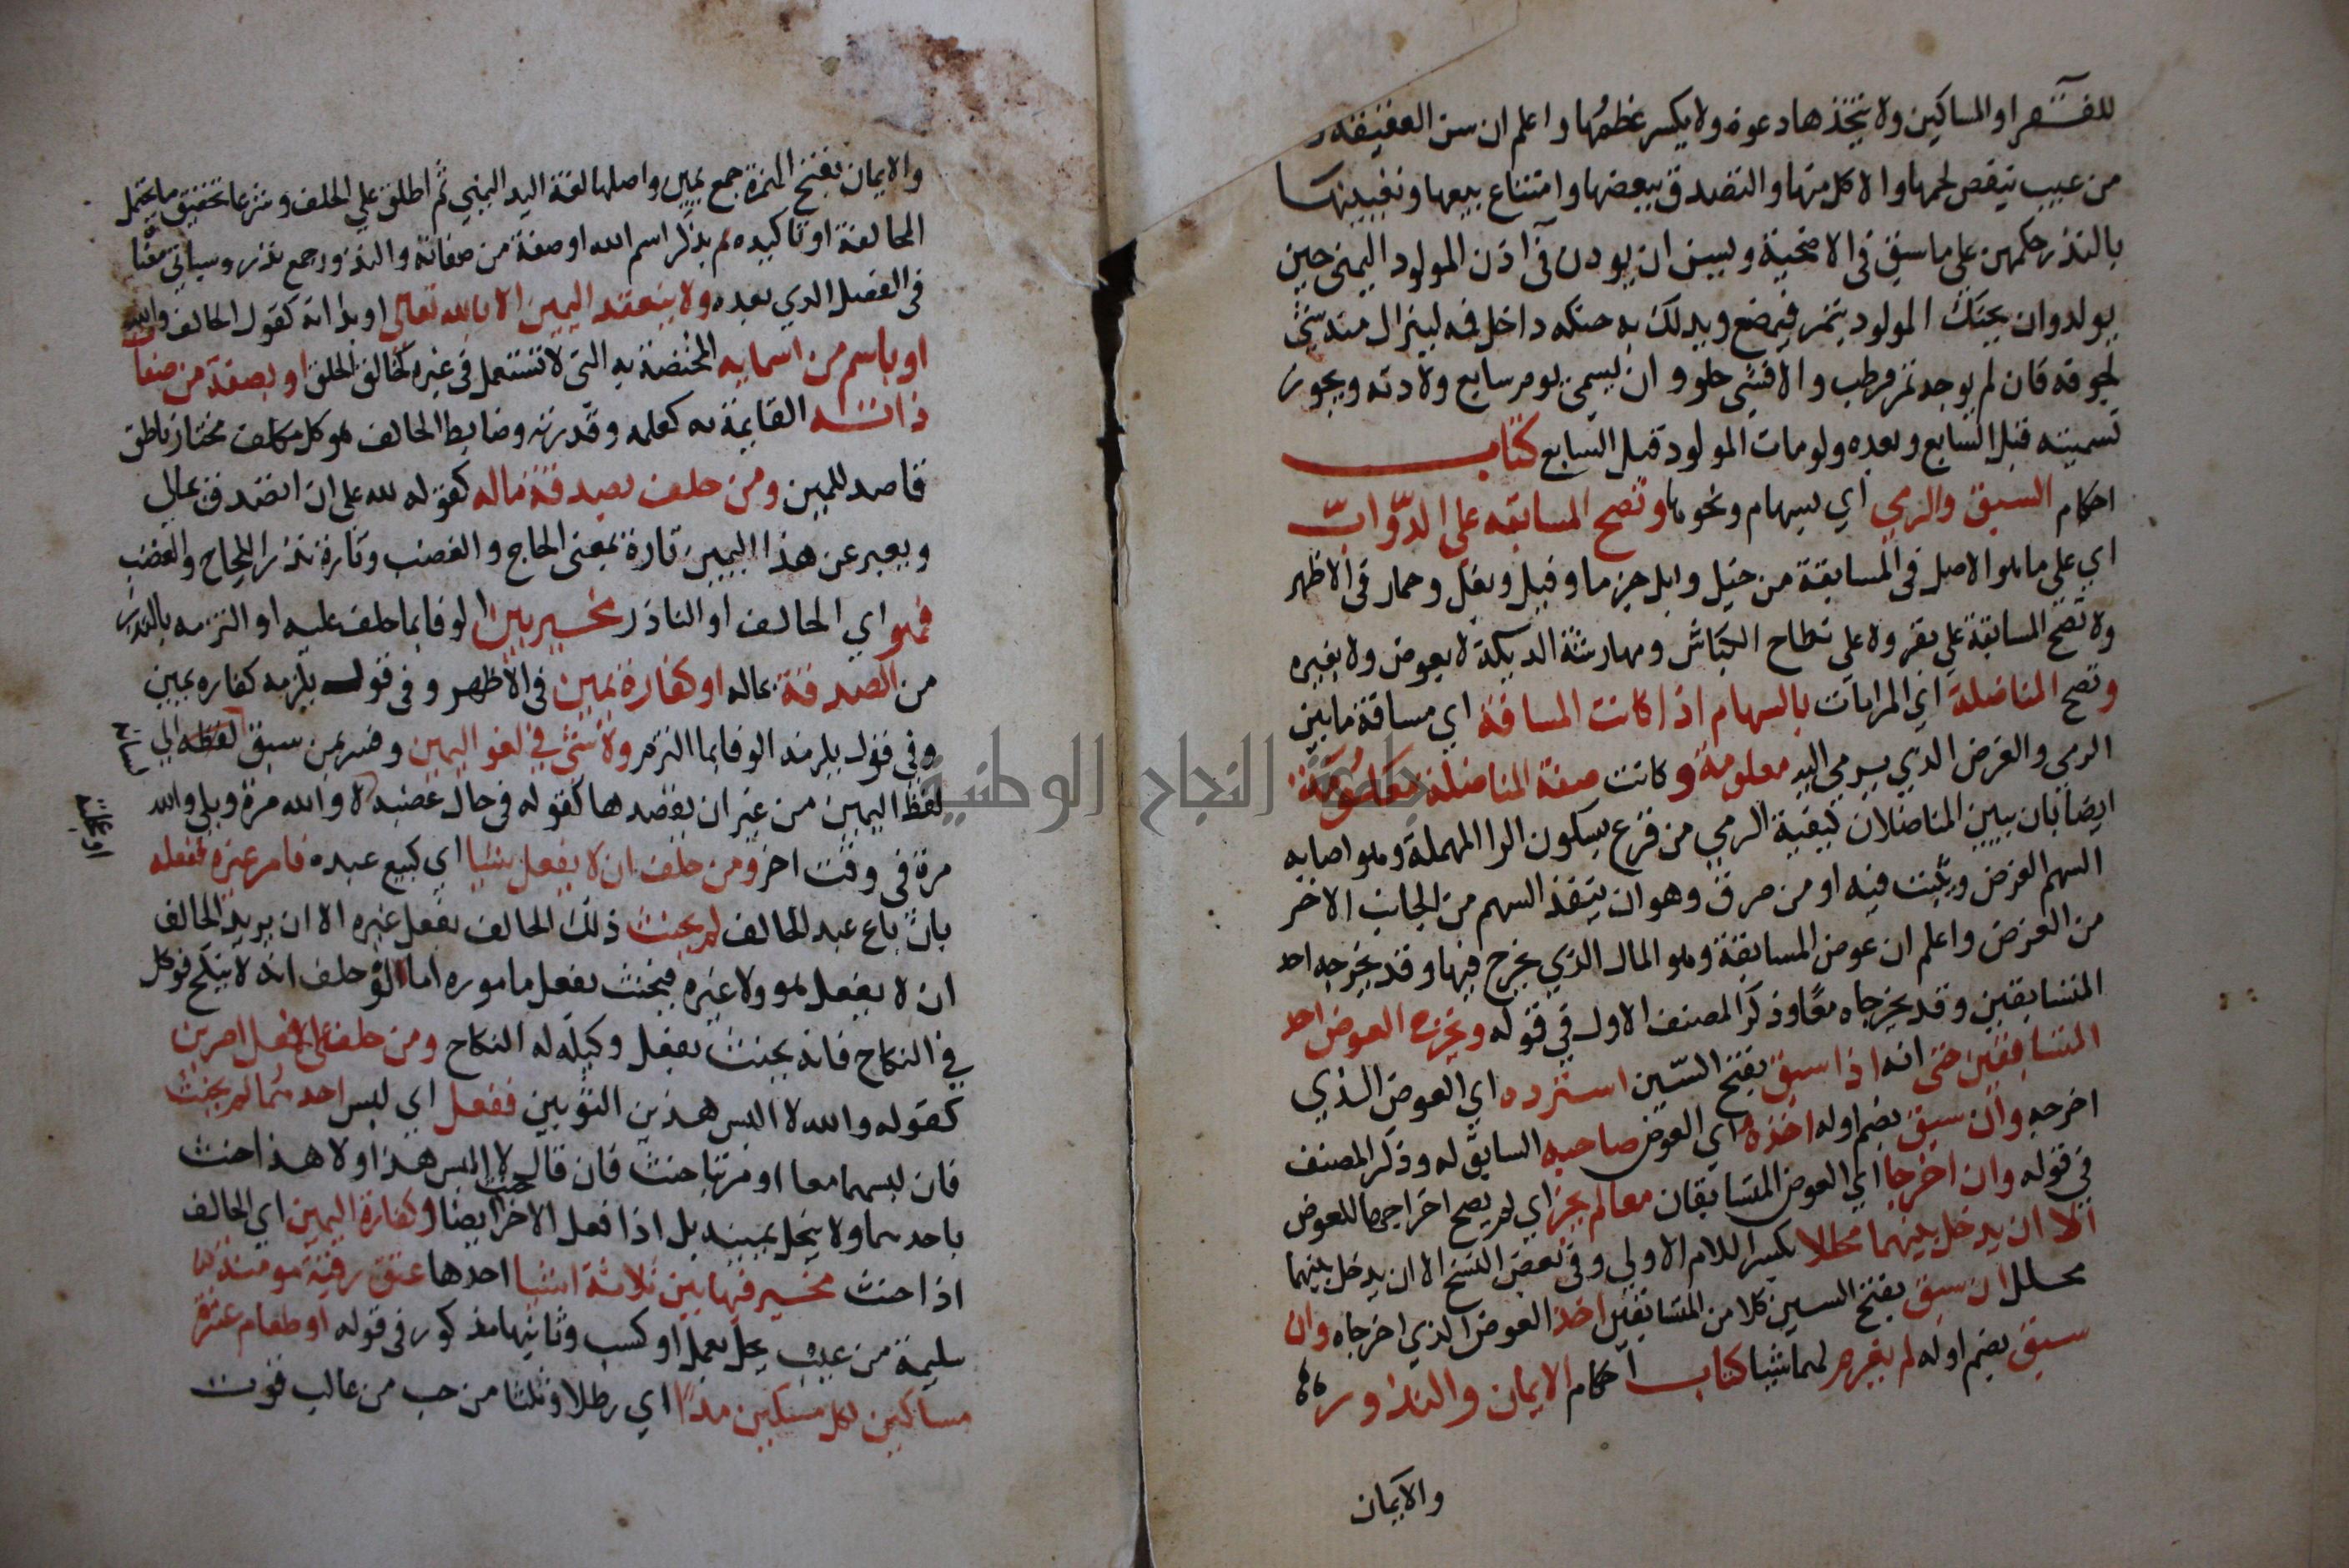 للفقرا والمساكين ولا يتخذها دعوة ولا يكسر عظمها واعلم ان سن العقيقة و
من عيب ينقص لحمها والاكل منها والتصدق ببعضها وامتناع بيعها وتعيينها
بالنذر حكمهن على ما سبق في الاضحية ويسن ان يوذن في اذن المولود اليمنى حين
يولد وان يحنك المولود بتمر فيمضغ ويدلك به حنكه داخل فمه لينزل منه شي
لجوفه فان لم يوجد تمر فرطب والا فشي حلو وان يسمى يوم سابع ولادته ويجوز
تسميته قبل السابع وبعده ولو مات المولود قبل السابع كتاب
احكام السبق والرمي اي بسهام ونحوها وتصح المسابقه على الدواب
اي على ما هو الاصل في المسابقة من خيل وابل جزما وفيل وبغل وحمار في الاظهر
ولا تصح المسابقة على بقر ولا على نطاح الكباش ومهارشة الديكة لا بعوض ولا بغيره
وتصح المناضلة اي المرامات بالسهام اذا كانت المسافة اي مسافة ما بين
الرمي والغرض الذي يرمي اليه معلومة وكانت صفة المناضلة معلومة
ايضا بان يبين المناضلان كيفية الرمي من قرع بسكون الرا المهملة وهو اصابه
السهم الغرض ويثبت فيه او من مرق وهو ان ينفذ السهم من الجانب الاخر
من الغرض واعلم ان عوض المسابقة وهو المال الذي يخرج فيها وقد يخرجه احد
المتسابقين وقد يخرجاه معا وذكر المصنف الاول في قوله ويخرج العوض احد
المتسابقين حتى انه اذا سبق بفتح السين استرده اي العوض الذي
اخرجه وان سبق بضم اوله اخذه اي العوض صاحبه السابق له وذكر المصنف
في قوله وان اخرجا اي العوض المتسابقان معا لم يجز اي لم يصح اخراجهما للعوض
الا ان يدخل بينهما محللا بكسر اللام الاولي وفي بعض النسخ الا ان يدخل بينهما
محلل ان سبق بفتح السين كلا من المتسابقين اخذ العوض الذي اخرجاه وان
سبق بضم اوله لم يغرم لهما شيا كتاب احكام الايمان والنذور
والايمان
والايمان بفتح الهمزة جمع يمين واصلها لغة اليد اليمني ثم اطلق علي الحلف وشرعا تحقيق ما يحتمل
المخالفة او تاكيده بذكر اسم الله او صفة من صفاته والنذور جمع نذر وسياتي معنا
في الفصل الذي بعده ولا ينعقد اليمين الا بالله تعالى او بذاته كقول الحالف والله
او باسم من اسمايه المختصة به التي لا تستعمل في غيره كخالق الخلق او بصفة من صفا
ذاته القايمة به كعلمه وقدرته وضابط الحالف هو كل مكلف مختار ناطق
قاصد لليمين ومن حلف بصدقة ماله كقوله لله على ان اتصدق بمالي
ويعبر عن هذا اليمين تارة بمعنى اللجاج والغضب وتارة نذر اللجاج والغضب
فهو اي الحالف او الناذر مخير بين الوفا بما حلف عليه او التزمه بالنذر
من الصدقة بماله او كفارة يمين في الاظهر وفي قول يلزمه كفاره يمين
وفي قول يلزمه الوفا بما التزم ولا شي في لغو اليمين وفسر بمن سبق لفظه الي
لفظ اليمين من غير ان يقصدها كقوله في حال غضبه لا والله مرة وبلى والله
مرة في وقت اخر ومن حلف ان لا يفعل شيا اي كبيع عبده فامر غيره ففعله
بان باع عبد الحالف لم يحنث ذلك الحالف بفعل غيره الا ان يريد الحالف
ان لا يفعل هو ولا غيره فيحنث بفعل ماموره اما لو حلف انه لا ينكح فوكل
في النكاح فانه يحنث بفعل وكيله له النكاح ومن حلف على فعل امرين
كقوله والله لا البس هذين الثوبين ففعل اي لبس احدهما لم يحنث
فان لبسهما معا او مرتبا حنث فان قال لا البس هذا ولا هذا حنث
باحدهما ولا ينحل يمينه بل اذا فعل الاخر حنث ايضا وكفارة اليمين اي الحالف
اذا حنث مخير فيها بين ثلاثة اشيا احدها عتق رقبة مومنة
سليمة من عيب يخل بعمل او كسب وثانيها مذكور في قوله او طعام عشرة
مساكين لكل مسكين مدا اي رطلا وثلثا من حب من غالب قوت
جامعة النجاح الوطنية